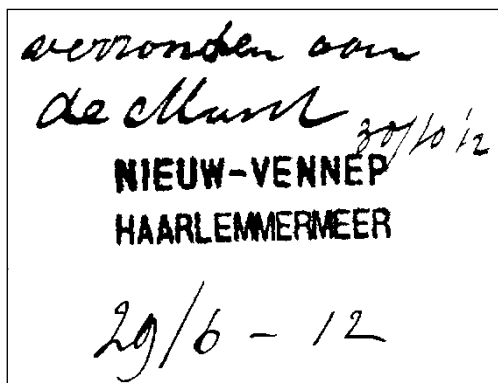 verzonden aan
de Munt
30/10 '12
NIEUW-VENNEP
HAARLEMMERMEER
29/6 - 12